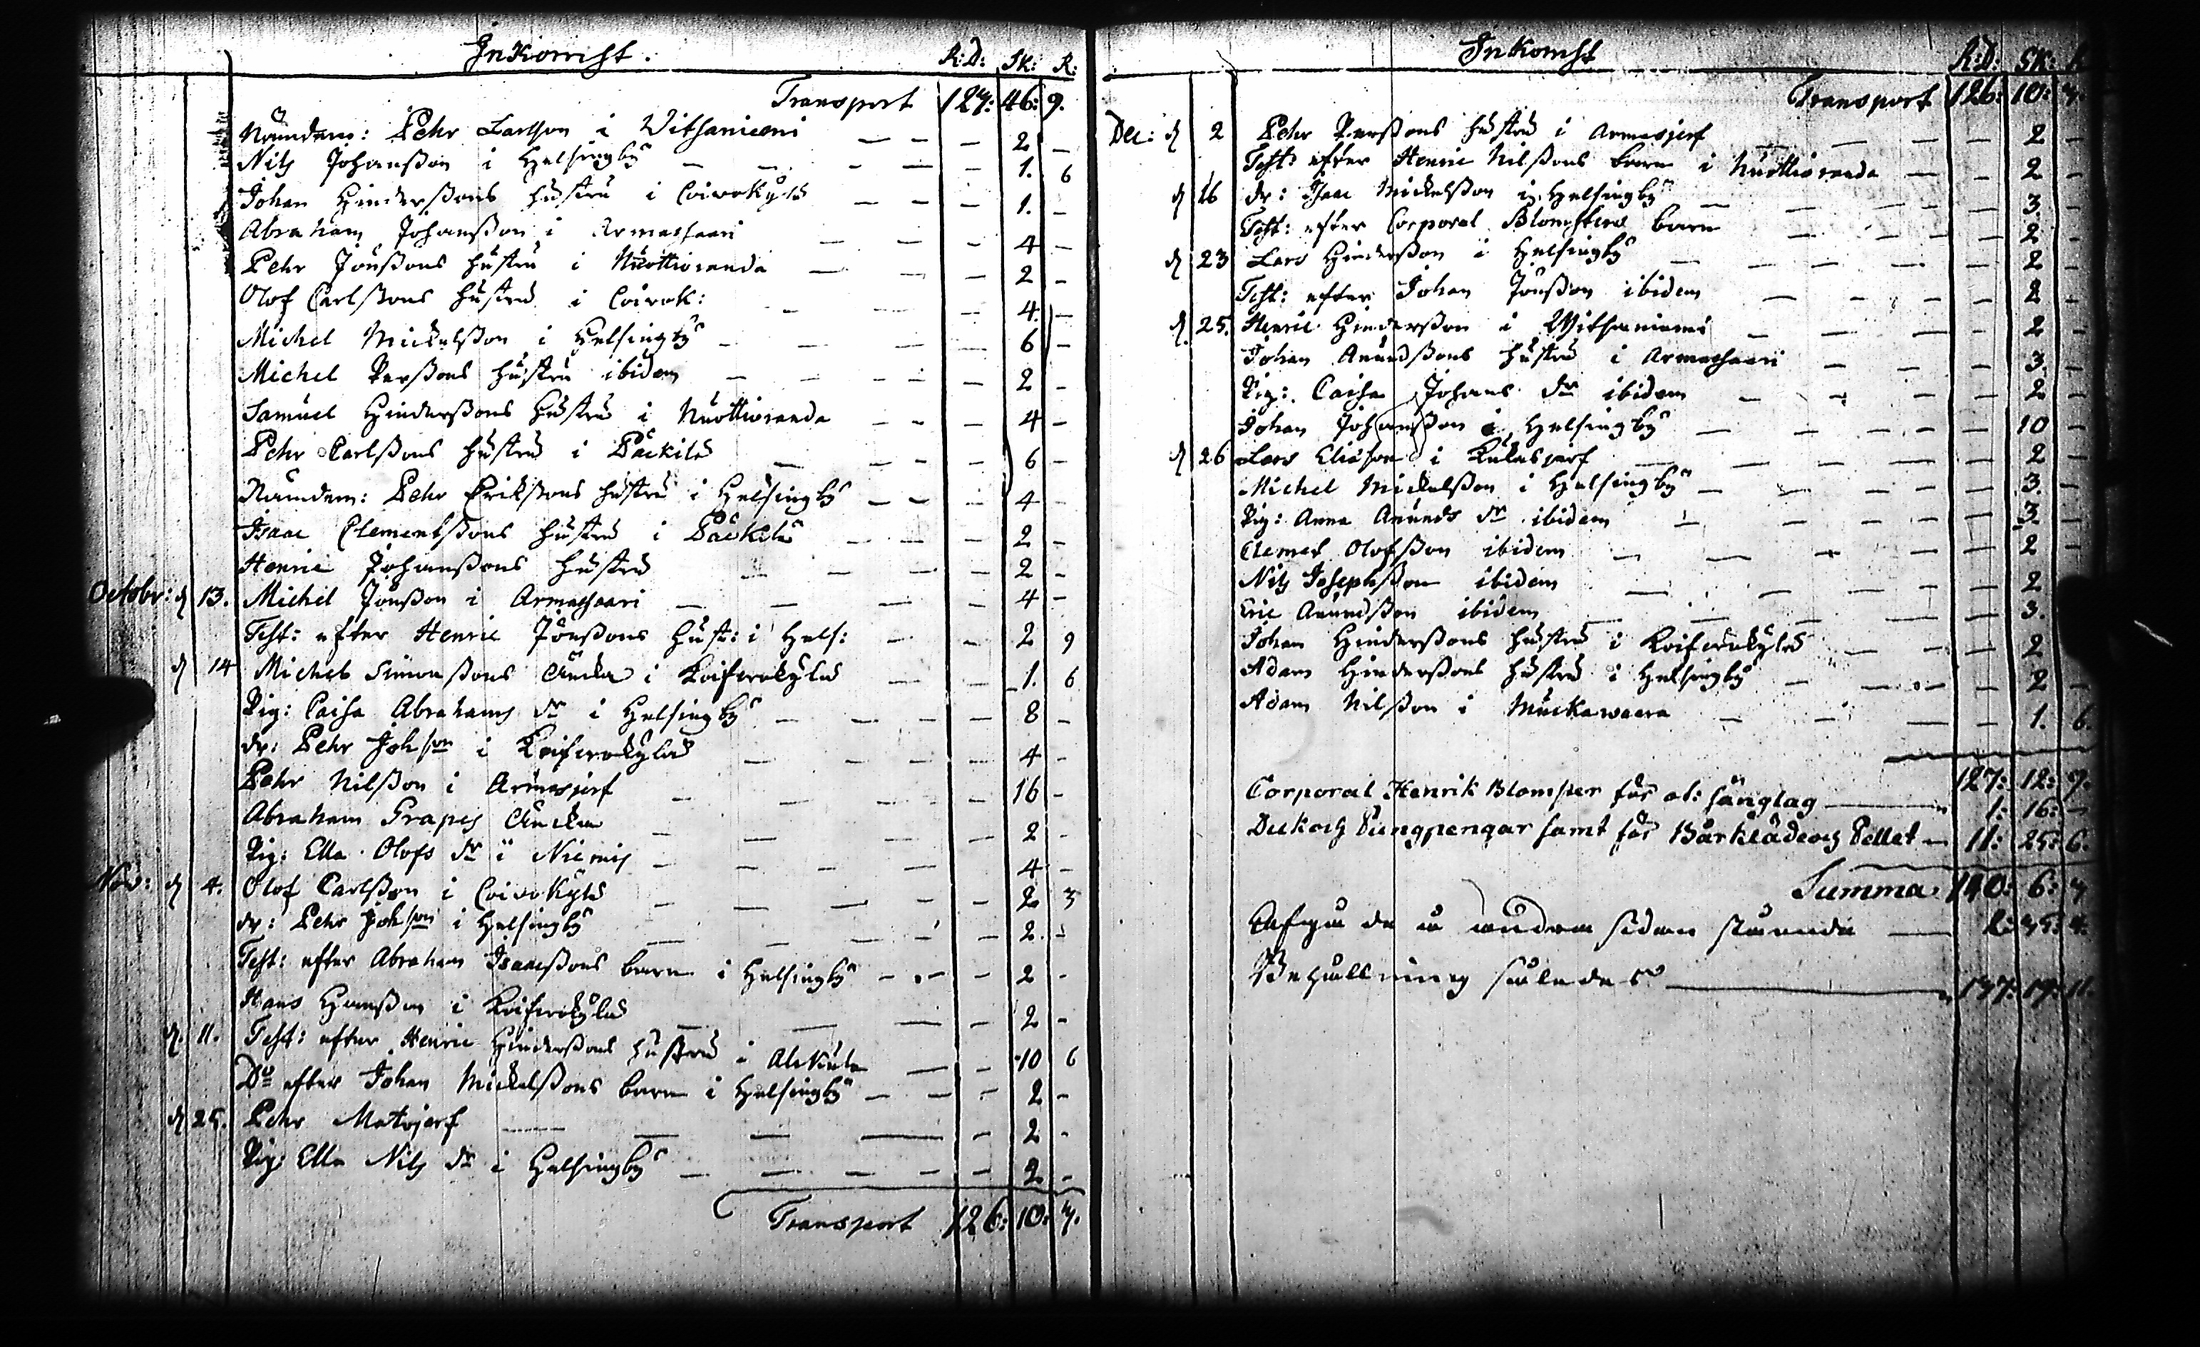 Inkomst.
R:D: Sk: R:
Transport 127: 46: 9.
Nämdem: Pehr Larsson i Witsaniemi — — — 2 —
Nils Johansson i Helsingby — — — 1. 6
Johan Hinderssons hustru i Coivokylä — — — 1. —
Abraham Johansson i Armassaari — — — 4 —
Pehr Jönssons hustru i Nuottioranda — — — 2 —
Olof Carlssons hustru i Coivok: — — — 4. —
Michel Mickelsson i Helsingby — — — 6 —
Michel Perssons hustru ibidem — — — 2 —
Samuel Hinderssons hustru i Nuottioranda — — — 4 —
Pehr Carlssons hustru i Päckilä — — — 6 —
Nämdem: Pehr Erikssons hustru i Helsingby — — — 4 —
Isaac Clementssons hustru i Päckilä — — — 2 —
Henric Johanssons hustru — — — 2 —
Octobr: d 13. Michel Jönsson i Armassaari — — — 4 —
Test: efter Henric Jönssons hust: i Hels: — — 2 9
d 14 Michels Simonssons Encka i Koiferokylä — — 1. 6
Pig: Caisa Abrahams dr i Helsingby — — — 8 —
dr: Pehr Johson i Koiferokylä — — — 4 —
Pehr Nilsson i Armasjerf — — — 16 —
Abraham Grapes Encka — — — 2 —
Pig: Ella Olofs dr i Niemis — — — 4 —
Nov: d 4. Olof Carlsson i Coivokylä — — — 2 3
dr: Pehr Johson i Helsingby — — — 2 —
Test: efter Abraham Isaacssons barn i Helsingby — — — 2 —
Hans Hansson i Koiferokylä — — — 2 —
d. 11. Test: efter Henric Hinderssons hustru i Alkula — — 10 6
Do efter Johan Mickelssons barn i Helsingby — — — 2 —
d 25. Pehr Matojerf — — — 2 —
Pig: Ella Nils dr i Helsingby — — — 2 —
Transport 126: 10: 7.
Inkomst
R:D: SK: R
Transport 126: 10: 7.
Dec: d 2 Pehr Perssons hustru i Armasjerf — — — 2 —
Test: efter Henric Nilssons barn i Nuottioranda — — 2 —
d 16 dr: Isaac Mickelsson i Helsingby — — — 3. —
Test: efter Corporal Blomsters barn — — — 2 —
d 23 Lars Hindersson i Helsingby — — — 2 —
Test: efter Johan Jönsson ibidem — — — 2 —
d. 25. Henric Hindersson i Witsaniemi — — — 2 —
Johan Anundssons hustru i Armassaari — — — 3. —
Pig: Caisa Johans dr ibidem — — — 2 —
Johan Johansson i Helsingby — — — 10 —
d 26 Lars Eliesson i Kukasjerf — — — 2 —
Michel Mickelsson i Helsingby — — — 3. —
Pig: Anna Anunds dr ibidem — — — 3. —
Clemet Olofsson ibidem — — — 2 —
Nils Josephsson ibidem — — — 2
Eric Anundsson ibidem — — — 3.
Johan Hinderssons hustru i Koiferokylä — — 2
Adam Hinderssons hustru i Helsingby — — 2 —
Adam Nilsson i Muckawaara — — — 1. 6.
127: 12: 9.
Corporal Henrik Blomster för ol: sånglag — 1: 16: —
Duk och Pungpengar samt för Bårklädeoch Pellet — 11: 25: 6.
Summa: 140: 6: 3
Afgå de å andra sidan stående — 2: 35: 4.
Behållning således — 137: 19: 11.